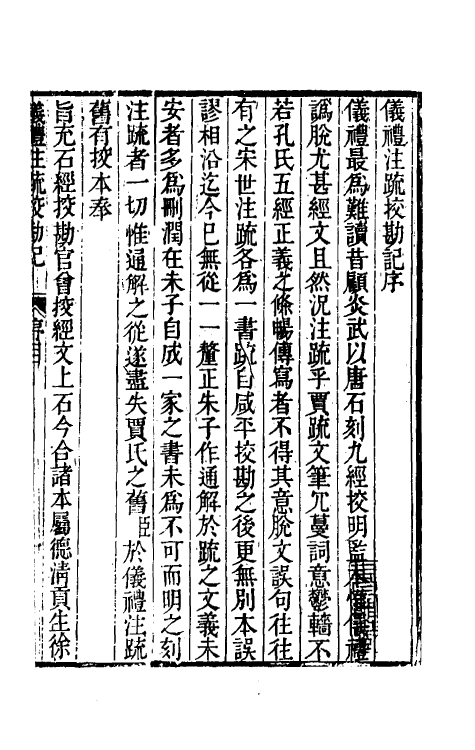 儀禮注疏挍勘記序
儀禮最爲難讀昔顧炎武以唐石刻九經挍明監本惟儀禮
譌脫尤甚經文且然況注疏乎賈疏文筆冗蔓詞意鬱轖不
若孔氏五經正義之條暢傳寫者不得其意脫文誤句往往
有之宋世注疏各爲一書疏自咸平挍勘之後更無別本誤
謬相沿迄今已無從一一釐正朱子作通解於疏之文義未
安者多爲刪潤在朱子自成一家之書未爲不可而明之刻
注疏者一切惟通解之從遂盡失賈氏之舊臣於儀禮注疏
舊有挍本奉
旨充石經挍勘官曾挍經文上石今合諸本屬德清貢生徐
儀禮注疏挍勘記 序目